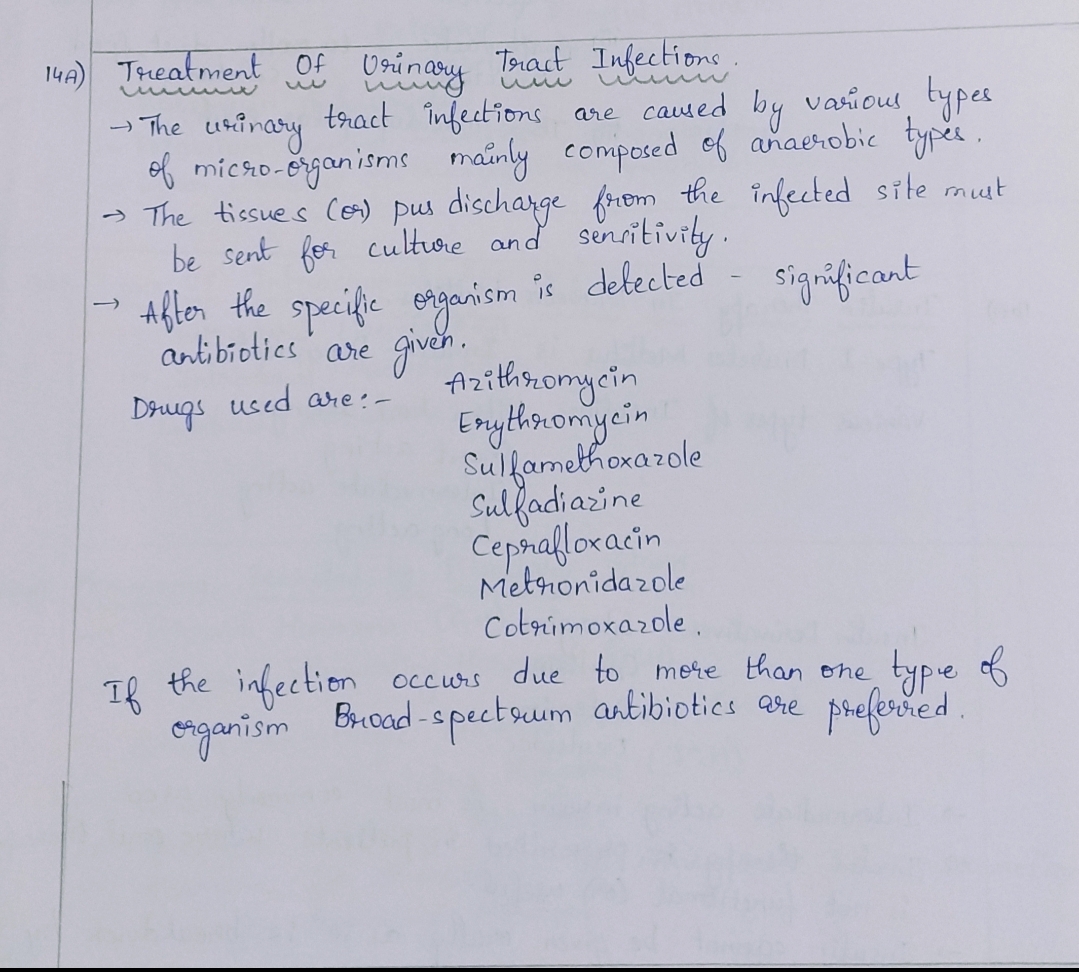 14A) Treatment Of Urinary Tract Infections.
→ The urinary tract infections are caused by various types
of micro-organisms mainly composed of anaerobic types.
→ The tissues (or) pus discharge from the infected site must
be sent for culture and sensitivity.
→ After the specific organism is detected - significant
antibiotics are given.
Drugs used are:- Azithromycin
Erythromycin
Sulfamethoxazole
Sulfadiazine
Ceprafloxacin
Metronidazole
Cotrimoxazole.
If the infection occurs due to more than one type of
organism Broad-spectrum antibiotics are preferred.